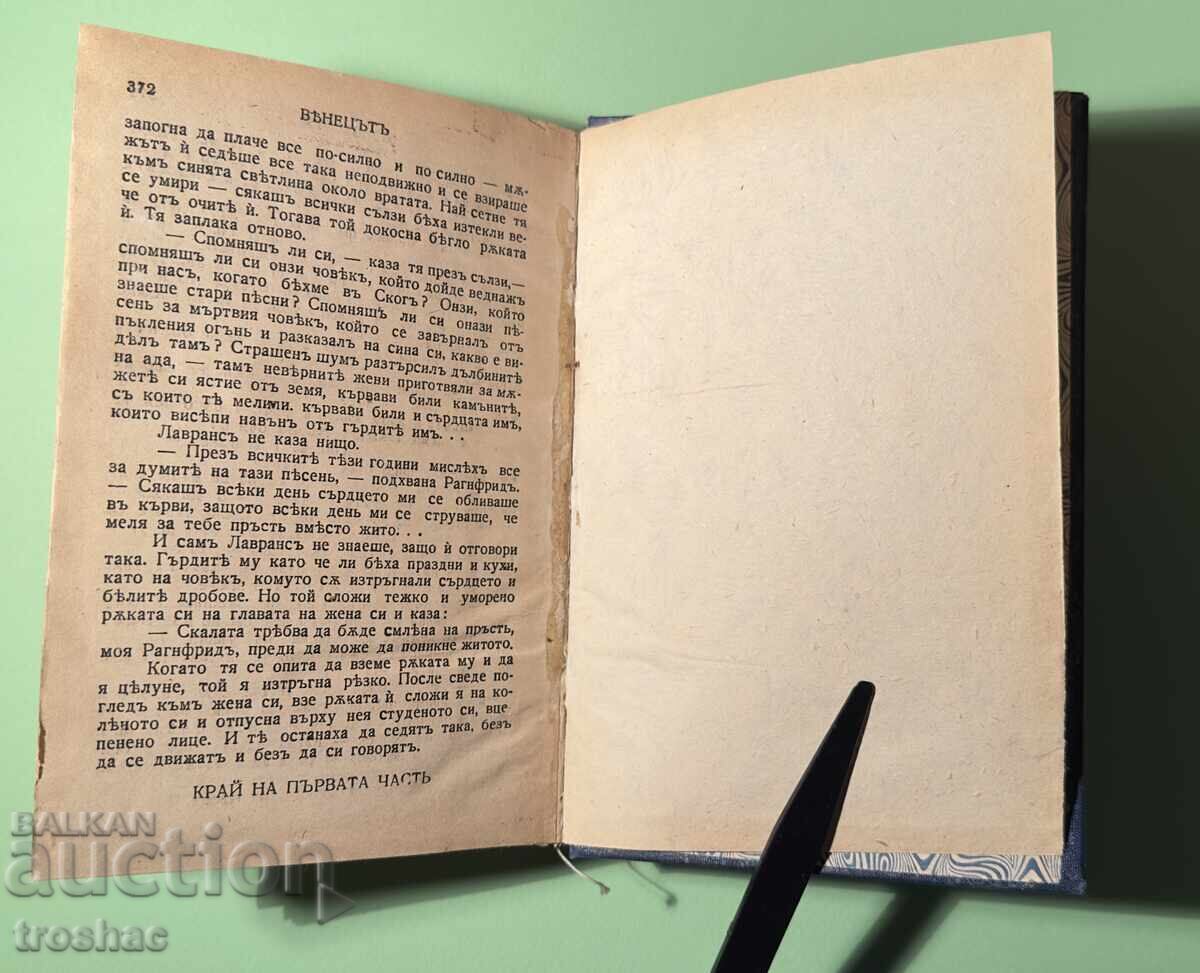 372
ВѢНЕЦЪТЪ
запогна да плаче все по-силно и по силно — мѫ-
жътъ ѝ седѣше все така неподвижно и се взираше
къмъ синята свѣтлина около вратата. Най сетне тя
се умири — сякашъ всички сълзи бѣха изтекли ве-
че отъ очитѣ ѝ. Тогава той докосна бѣгло рѫката
ѝ. Тя заплака отново.
— Спомняшъ ли си, — каза тя презъ сълзи,—
спомняшъ ли си онзи човѣкъ, който дойде веднажъ
при насъ, когато бѣхме въ Скогъ? Онзи, който
знаеше стари пѣсни? Спомняшъ ли си онази пѣ-
сень за мъртвия човѣкъ, който се завърналъ отъ
пъкления огънь и разказалъ на сина си, какво е ви-
дѣлъ тамъ? Страшенъ шумъ разтърсилъ дълбинитѣ
на ада, — тамъ невѣрнитѣ жени приготвяли за мѫ-
жетѣ си ястие отъ земя, кървави били камънитѣ,
съ които тѣ мелили. кървави били и сърдцата имъ,
които висѣпи навънъ отъ гърдитѣ имъ. . .
Лаврансъ не каза нищо.
— Презъ всичкитѣ тѣзи години мислѣхъ все
за думитѣ на тази пѣсень, — подхвана Рагнфридъ.
— Сякашъ всѣки день сърдцето ми се обливаше
въ кърви, защото всѣки день ми се струваше, че
меля за тебе пръсть вмѣсто жито. . .
И самъ Лаврансъ не знаеше, защо ѝ отговори
така. Гърдитѣ му като че ли бѣха праздни и кухи,
като на човѣкъ, комуто сѫ изтръгнали сърдцето и
бѣлитѣ дробове. Но той сложи тежко и уморено
рѫката си на главата на жена си и каза:
— Скалата трѣбва да бѫде смлѣна на пръсть,
моя Рагнфридъ, преди да може да поникне житото.
Когато тя се опита да вземе рѫката му и да
я цѣлуне, той я изтръгна рѣзко. После сведе по-
гледъ къмъ жена си, взе рѫката ѝ сложи я на ко-
лѣното си и отпусна върху нея студеното си, вце
пенено лице. И тѣ останаха да седятъ така, безъ
да се движатъ и безъ да си говорятъ.
КРАЙ НА ПЪРВАТА ЧАСТЬ
BALKAN
auction
troshac